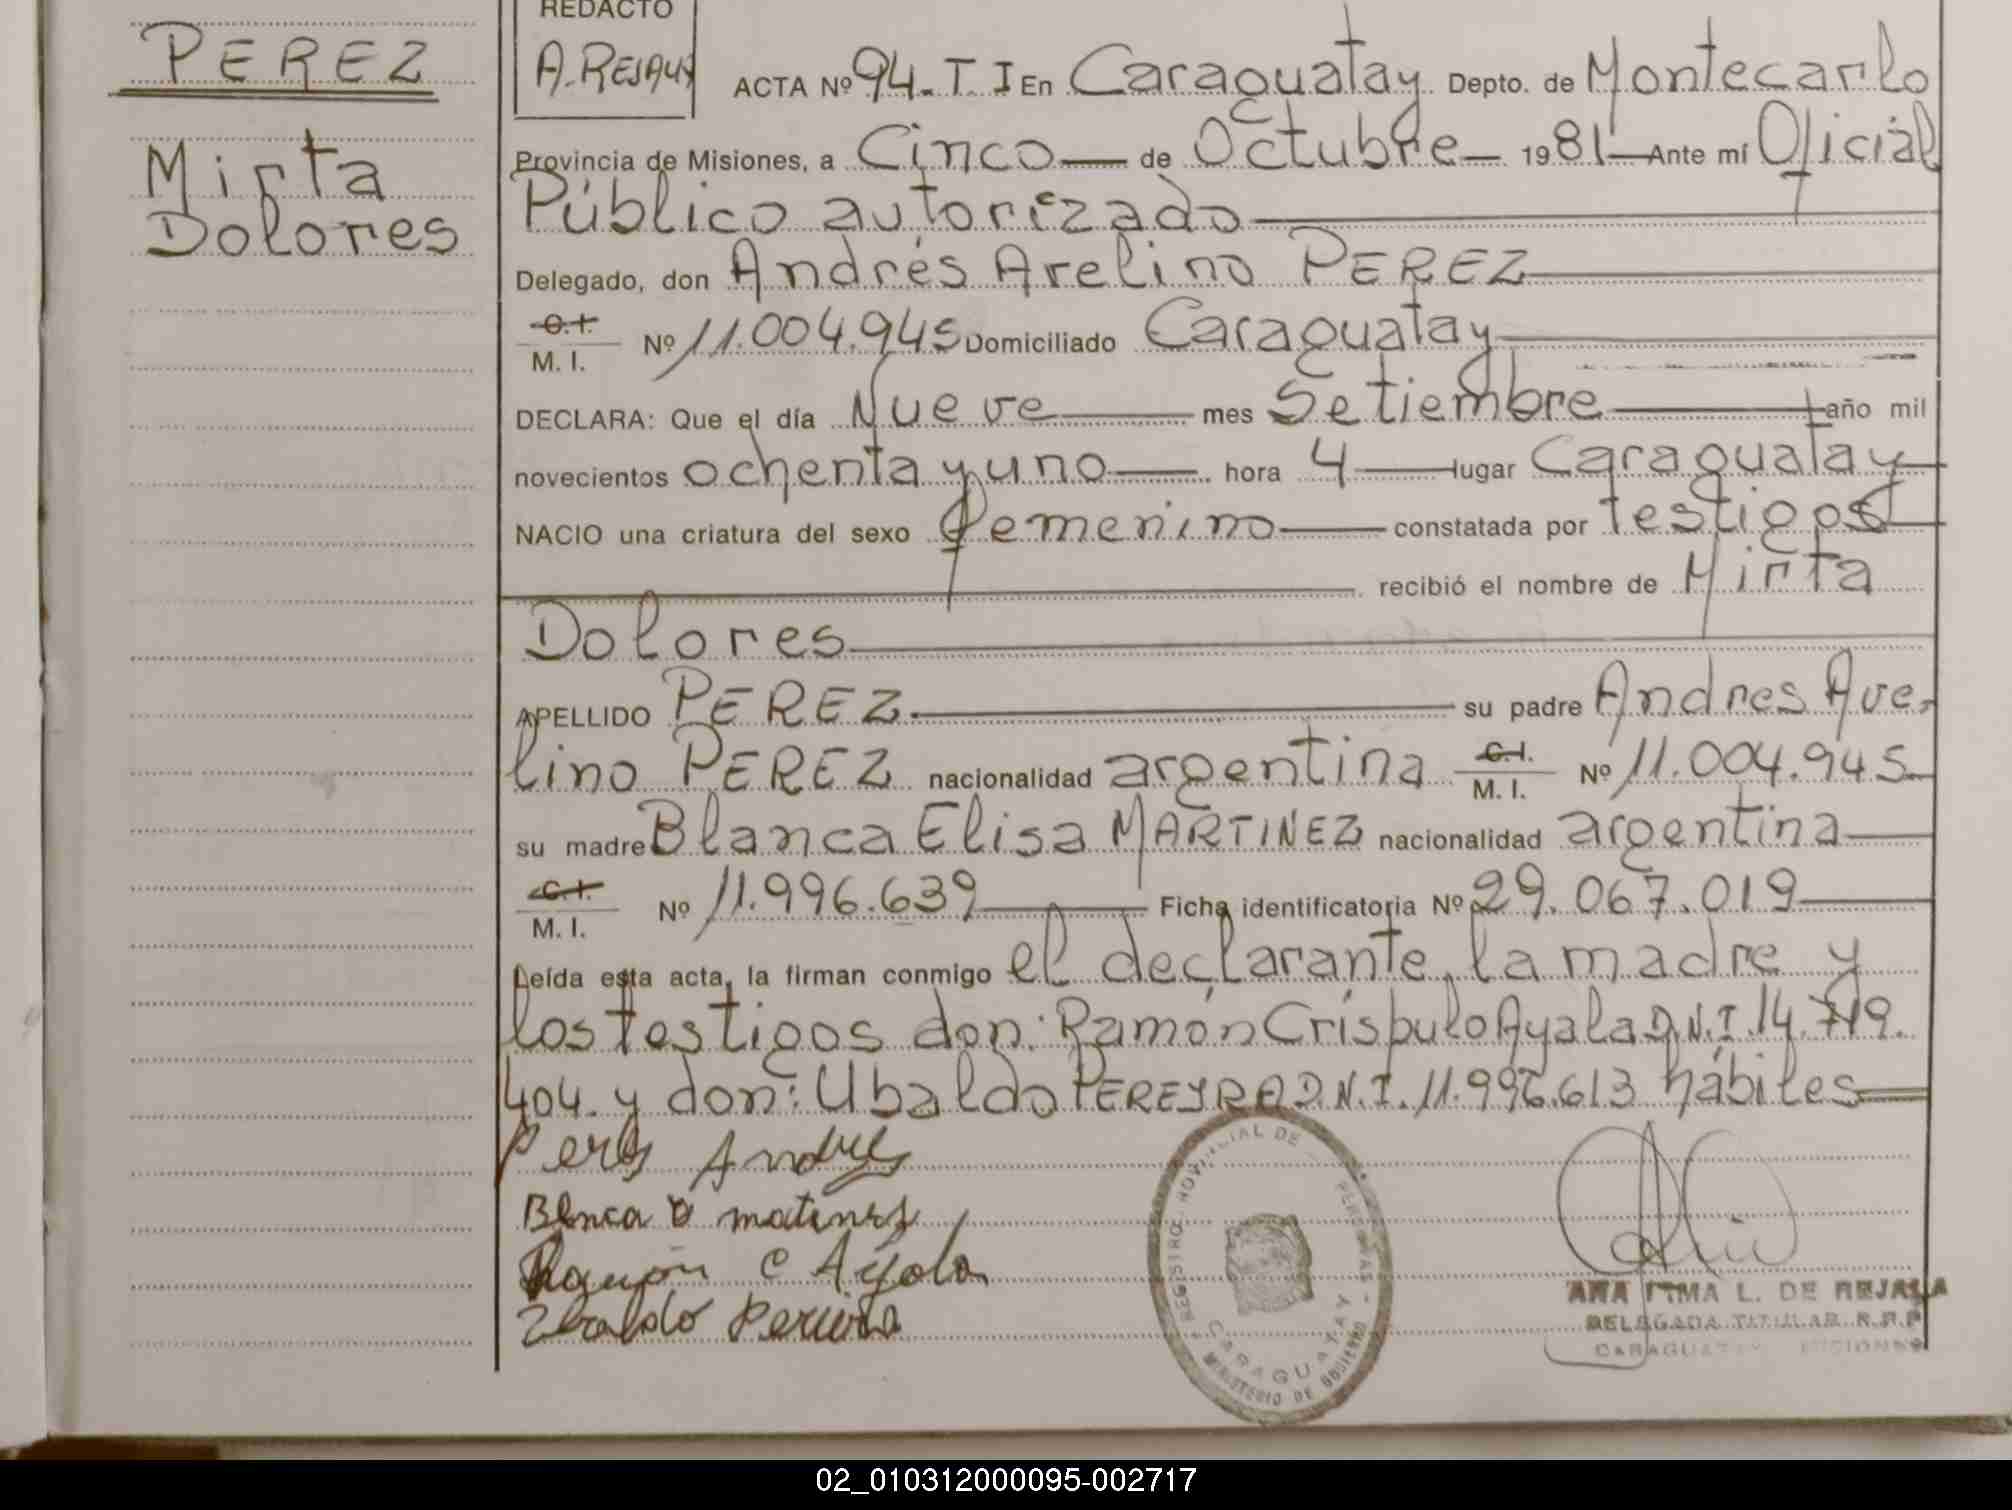 PEREZ
Mirta
Dolores
REDACTO
A. REJALA
ACTA Nº 94. T. I En Caraguatay Depto. de Montecarlo
Provincia de Misiones, a Cinco de Octubre 1981 Ante mí Oficial
Público autorizado
Delegado, don Andrés Avelino PEREZ
C.I.
M. I. Nº 11.004.945 Domiciliado Caraguatay
DECLARA: Que el día Nueve mes Setiembre año mil
novecientos ochenta y uno hora 4 lugar Caraguatay
NACIO una criatura del sexo femenino constatada por testigos
recibió el nombre de Mirta
Dolores
APELLIDO PEREZ su padre Andres Ave-
lino PEREZ nacionalidad argentina C.I. M. I. Nº 11.004.945
su madre Blanca Elisa MARTINEZ nacionalidad argentina
C.I.
M. I. Nº 11.996.639 Ficha identificatoria Nº 29.067.019
Leída esta acta, la firman conmigo el declarante, la madre y
los testigos don: Ramón Críspulo Ayala D.N.I. 14.719.
404. y don: Ubaldo PEREYRA D.N.I. 11.996.613 hábiles
Peres Andres
Blnca matines
Ramon C Ayala
Ubaldo Pereira
REGISTRO PROVINCIAL DE PERSONAS
CARAGUATAY
MINISTERIO DE GOBIERNO
L. DE REJALA
DELEGADA TITULAR R.P.P.
CARAGUATAY MISIONES
02_010312000095-002717